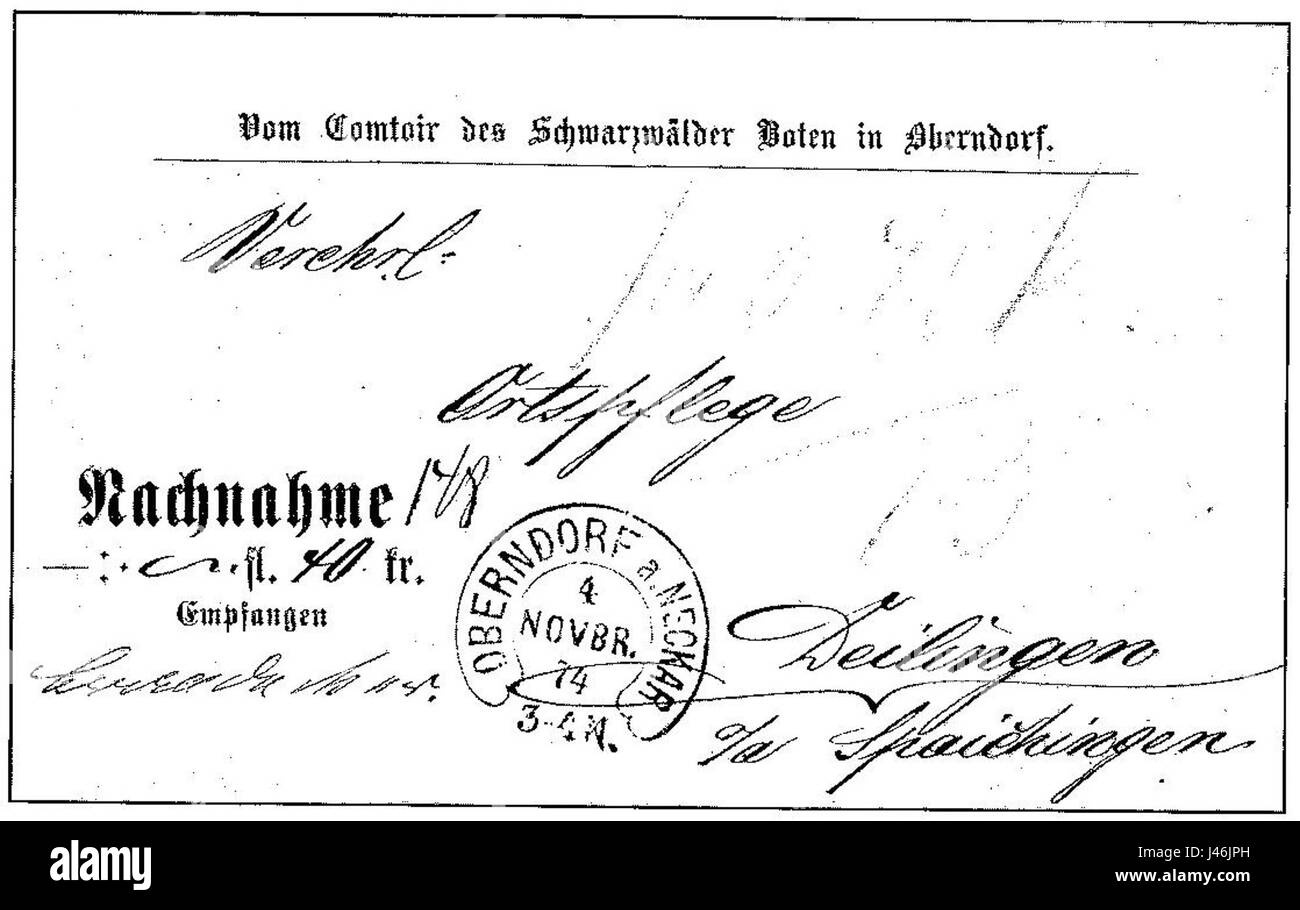 Vom Comtoir des Schwarzwälder Boten in Oberndorf.
Verehrl.
Ortspflege
Nachnahme 148
fl. 40 kr.
Empfangen
OBERNDORF a. NECKAR
4
NOVBR.
74
3-4 N.
Deilingen
o/a Spaichingen
alamy stock photo
J46JPH
www.alamy.com